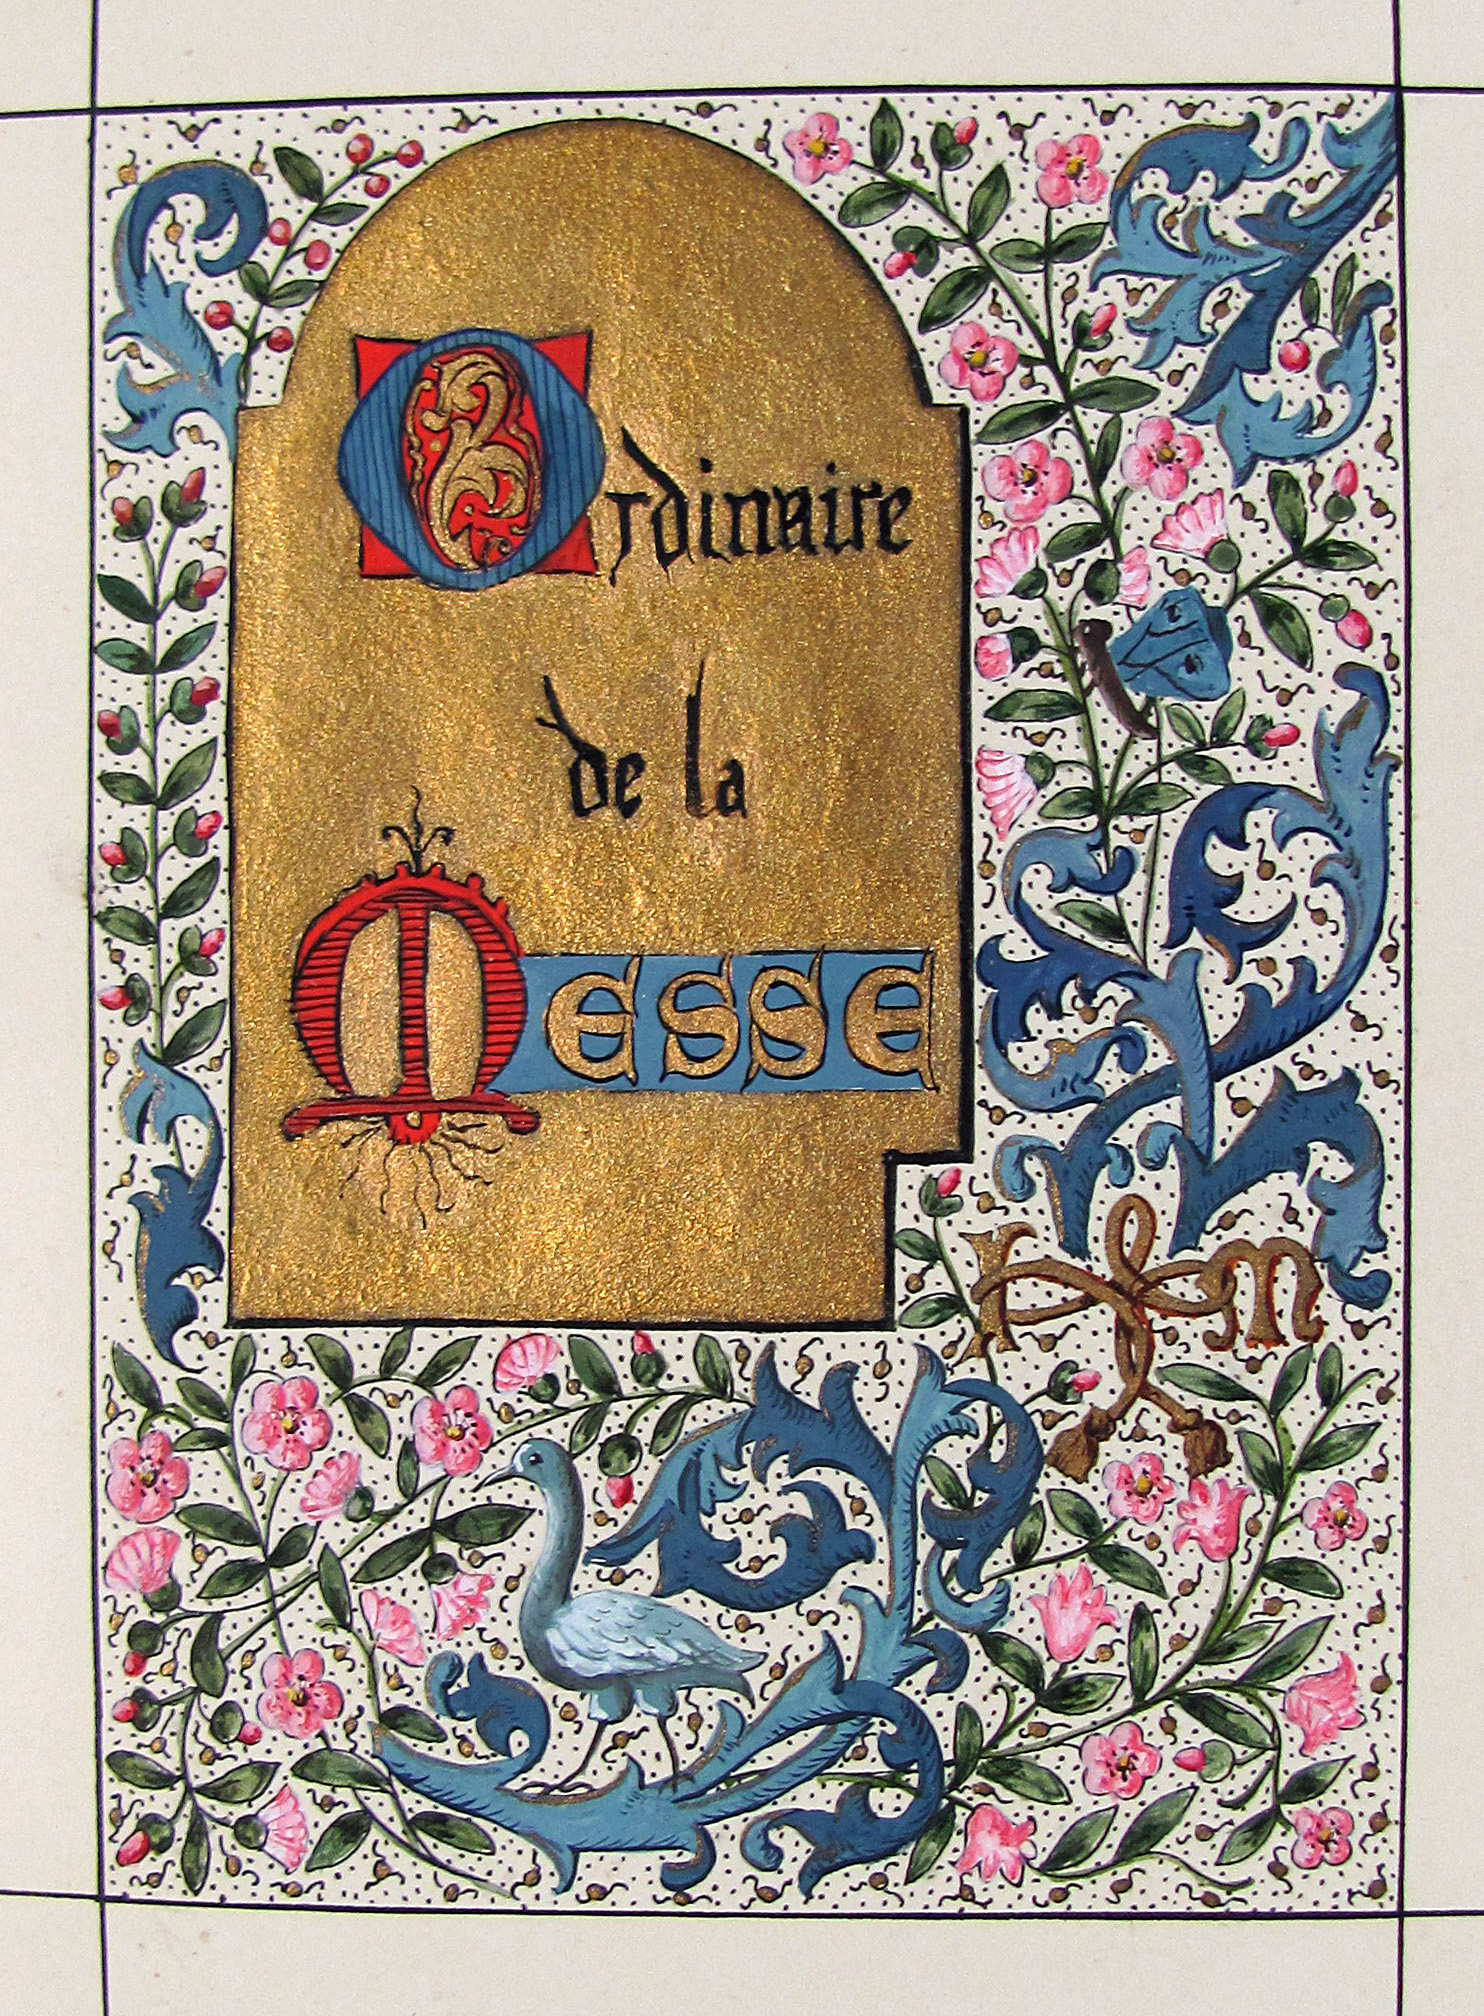 Ordinaire
de la
Messe